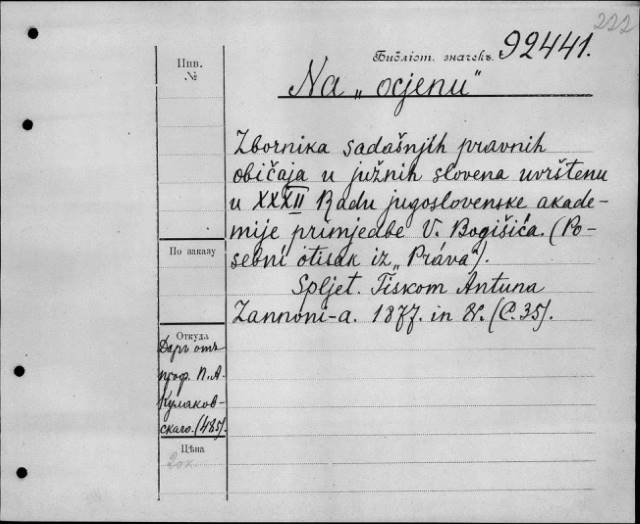 222
Библіот. значекъ 92441.
Инв.
№
Na „ocjenu"
Zbornika sadašnjih pravnih
običaja u južnih slovena uvrštenu
u XXXII Radu jugoslovenske akade-
mije primjedbe V. Bogišića. (Po-
sebni otisak iz „Práva").
Spljet. Tiskom Antuna
Zannoni-a. 1877. in 8º. (C. 35).
По заказу
Откуда
Даръ отъ
проф. П. А.
Кулаков-
скаго. (485).
Цѣна
20к